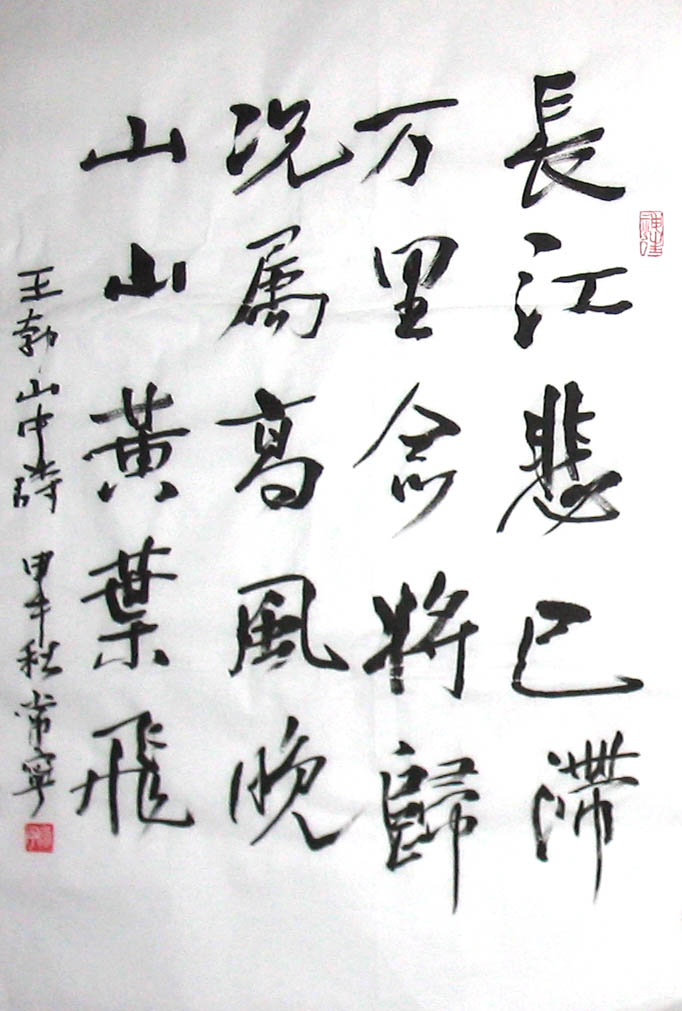 長江悲已滯
万里念将歸
况属高風晚
山山黃葉飛
王勃山中诗 甲午秋 常寧